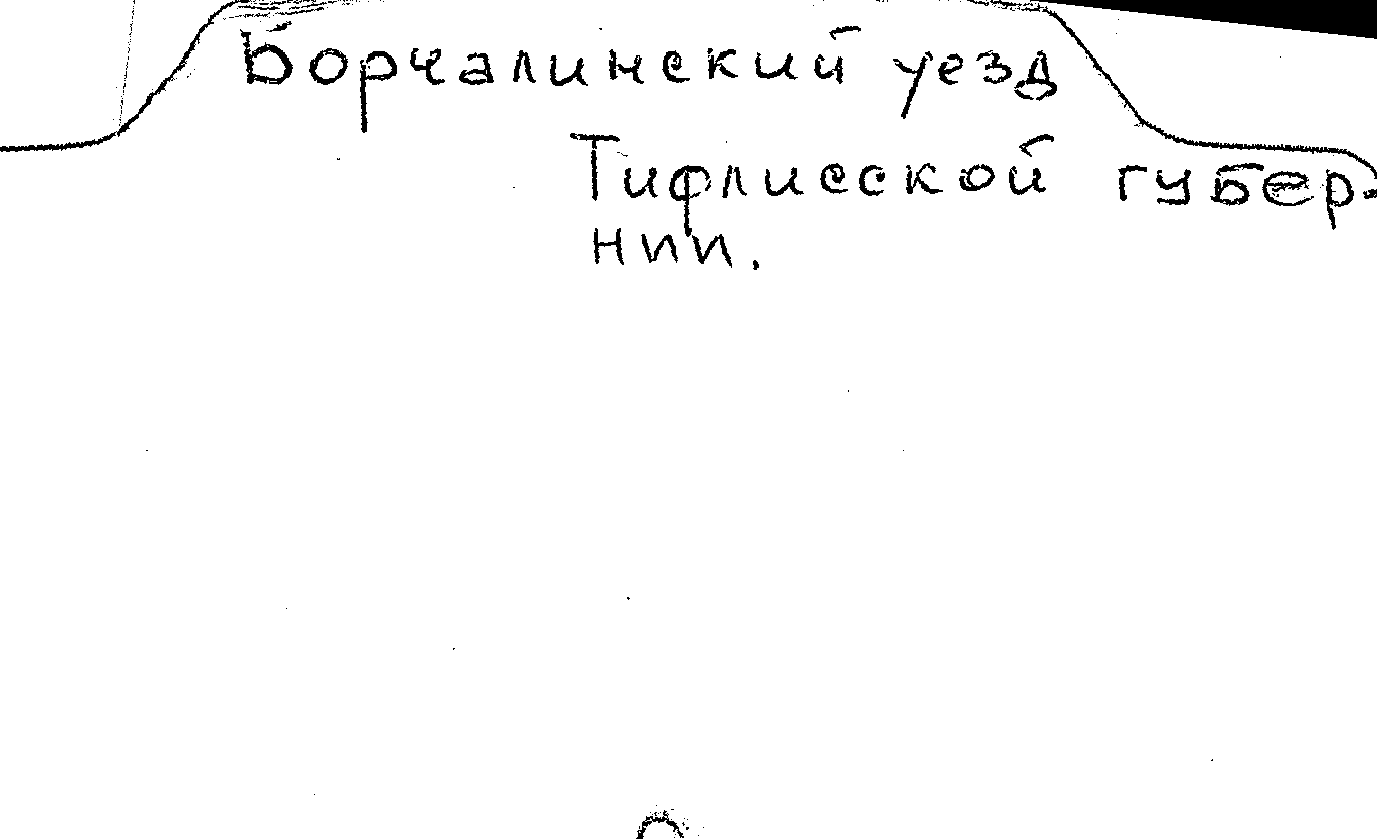 Борчалинский уезд
Тифлисской губер-
нии.